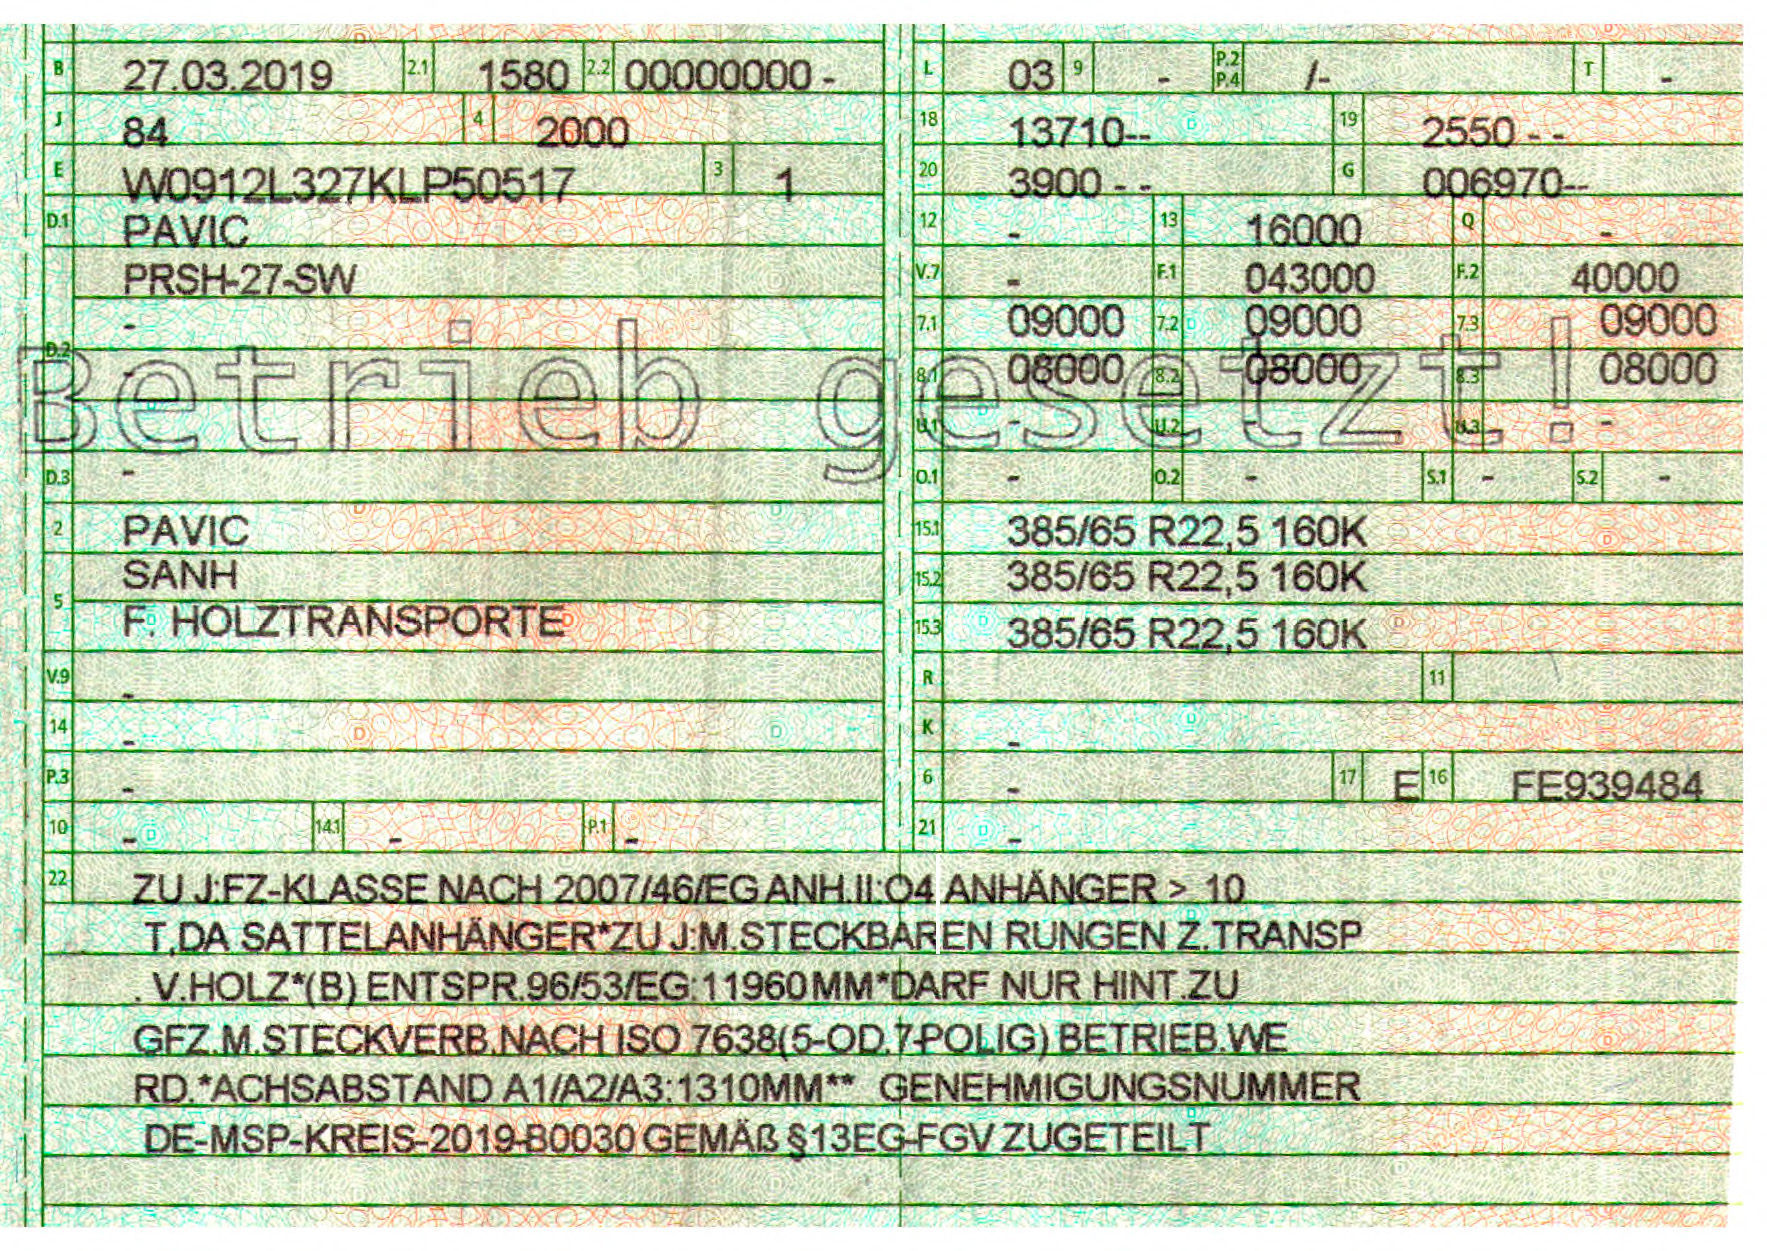 B 27.03.2019 2.1 1580 2.2 00000000 -
J 84 4 2000
E W0912L327KLP50517 3 1
D.1 PAVIC
PRSH-27-SW
-
D.2 -
Betrieb gesetzt!
D.3 -
2 PAVIC
5 SANH
F. HOLZTRANSPORTE
V.9 -
14 -
P.3 -
10 - 14.1 - P.1 -
L 03 9 - P.2 P.4 /- T -
18 13710-- 19 2550 - -
20 3900 - - G 006970--
12 - 13 16000 Q -
V.7 - F.1 043000 F.2 40000
7.1 09000 7.2 09000 7.3 09000
8.1 08000 8.2 08000 8.3 08000
U.1 - U.2 - U.3 -
O.1 - O.2 - S.1 - S.2 -
15.1 385/65 R22,5 160K
15.2 385/65 R22,5 160K
15.3 385/65 R22,5 160K
R 11
K -
6 - 17 E 16 FE939484
21 -
22 ZU J:FZ-KLASSE NACH 2007/46/EG ANH.II:O4 ANHÄNGER > 10
T,DA SATTELANHÄNGER*ZU J:M.STECKBAREN RUNGEN Z.TRANSP
. V.HOLZ*(B) ENTSPR.96/53/EG:11960 MM*DARF NUR HINT.ZU
GFZ.M.STECKVERB.NACH ISO 7638(5-OD.7-POLIG) BETRIEB.WE
RD.*ACHSABSTAND A1/A2/A3:1310MM** GENEHMIGUNGSNUMMER
DE-MSP-KREIS-2019-B0030 GEMÄß §13EG-FGV ZUGETEILT